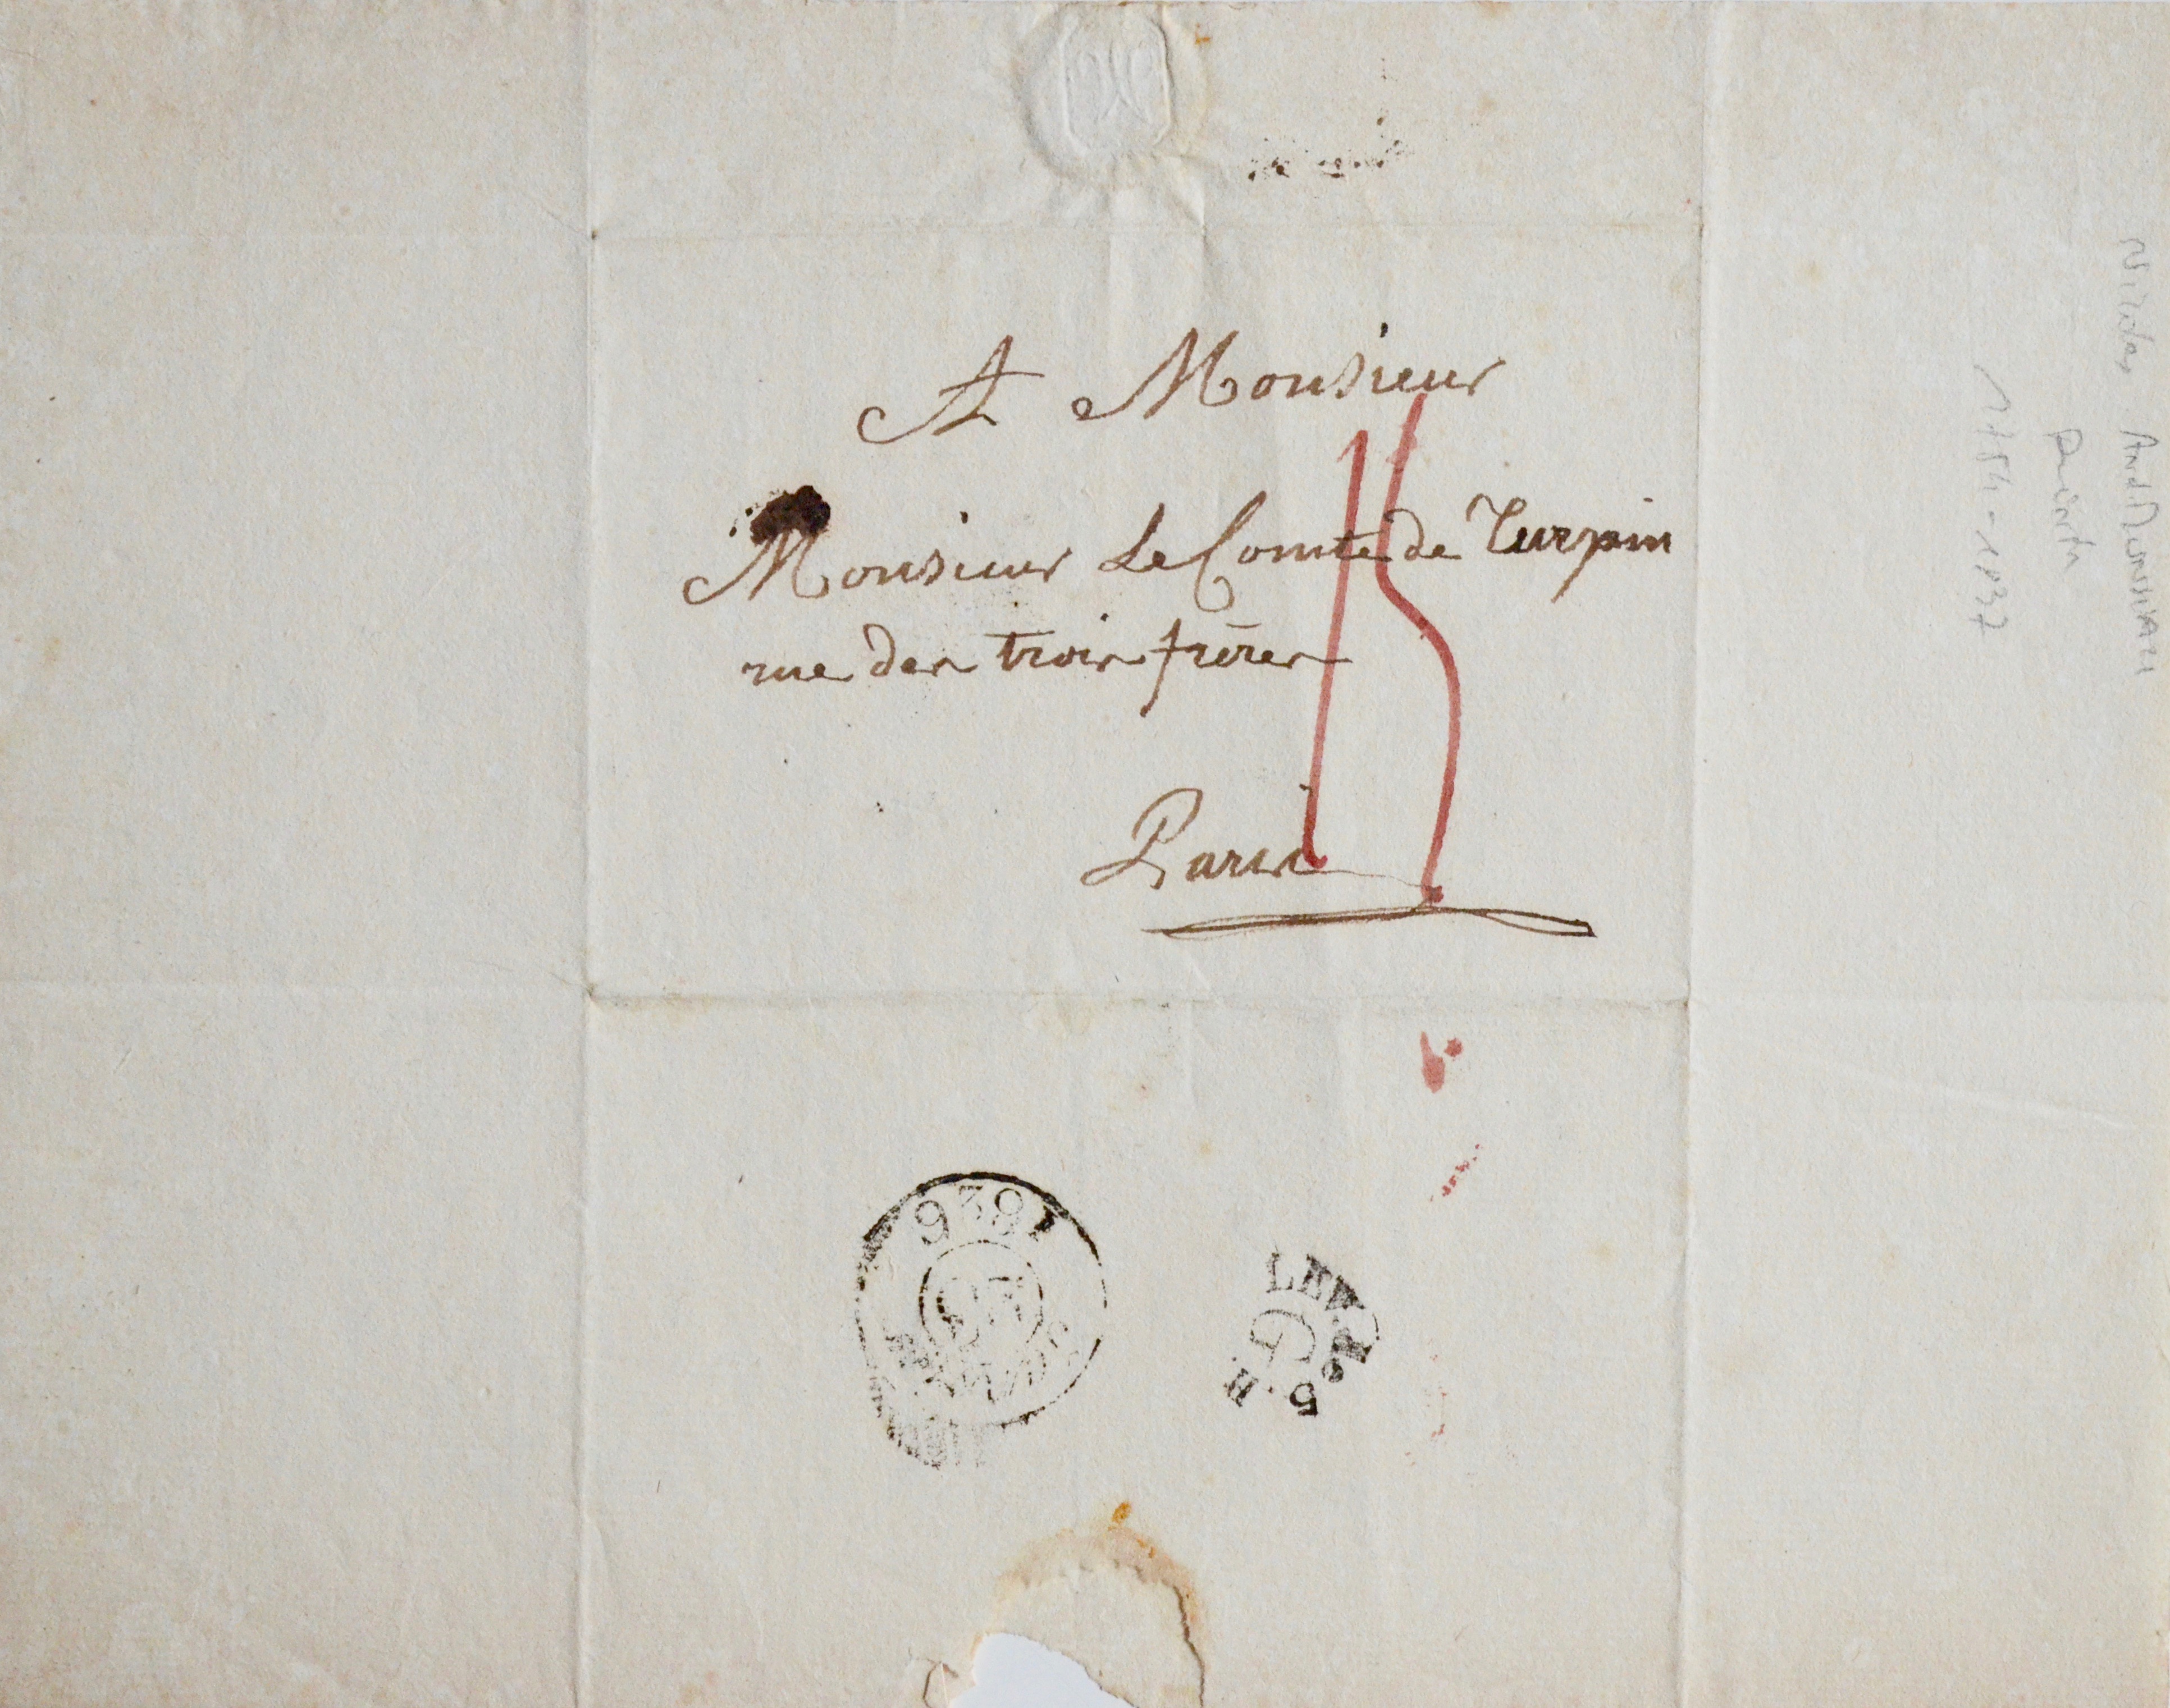 A Monsieur
Monsieur Le Comte de Turpin
rue des trois frères
Paris
15
1836
LEV. DE
5. H.
G
Nicolas
1754-1837